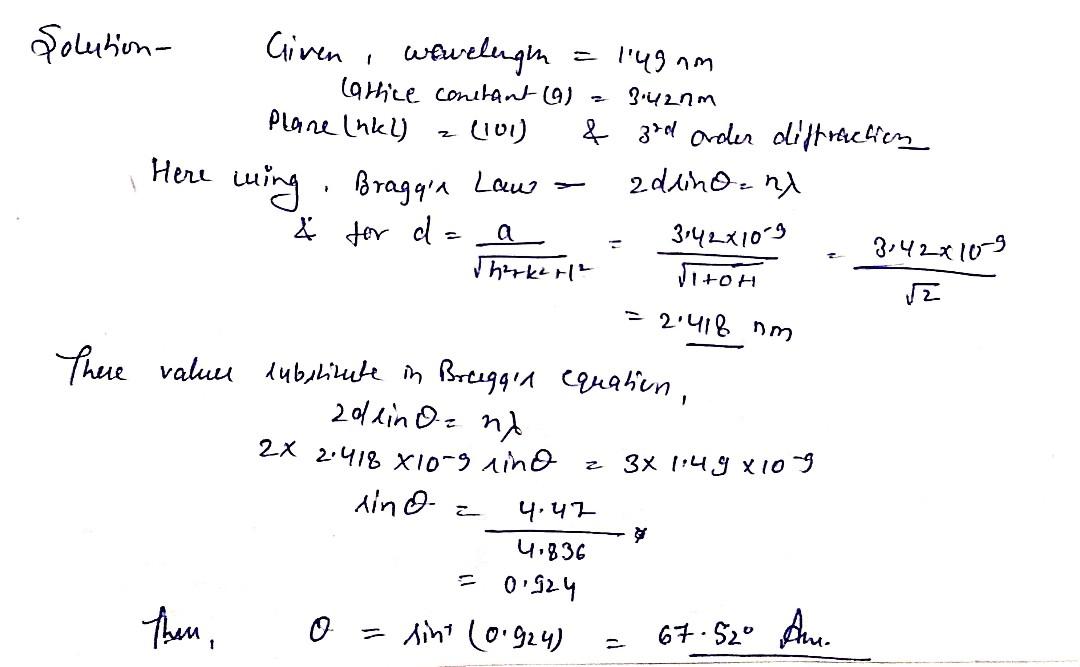 Solution- Given, wavelength = 1.49 nm
lattice constant (a) = 3.42nm
Plane (hkl) = (101) & 3rd order diffraction
Here using, Bragg's Law - 2d sinθ = nλ
& for d = a / √h²+k²+l² = 3.42x10-9 / √1+0+1 = 3.42x10-9 / √2
= 2.418 nm
These values substitute in Bragg's equation,
2d sinθ = nλ
2x 2.418 x10-9 sinθ = 3x 1.49 x10-9
sinθ = 4.47 / 4.836
= 0.924
Then, θ = sin-1 (0.924) = 67.52° Ans.